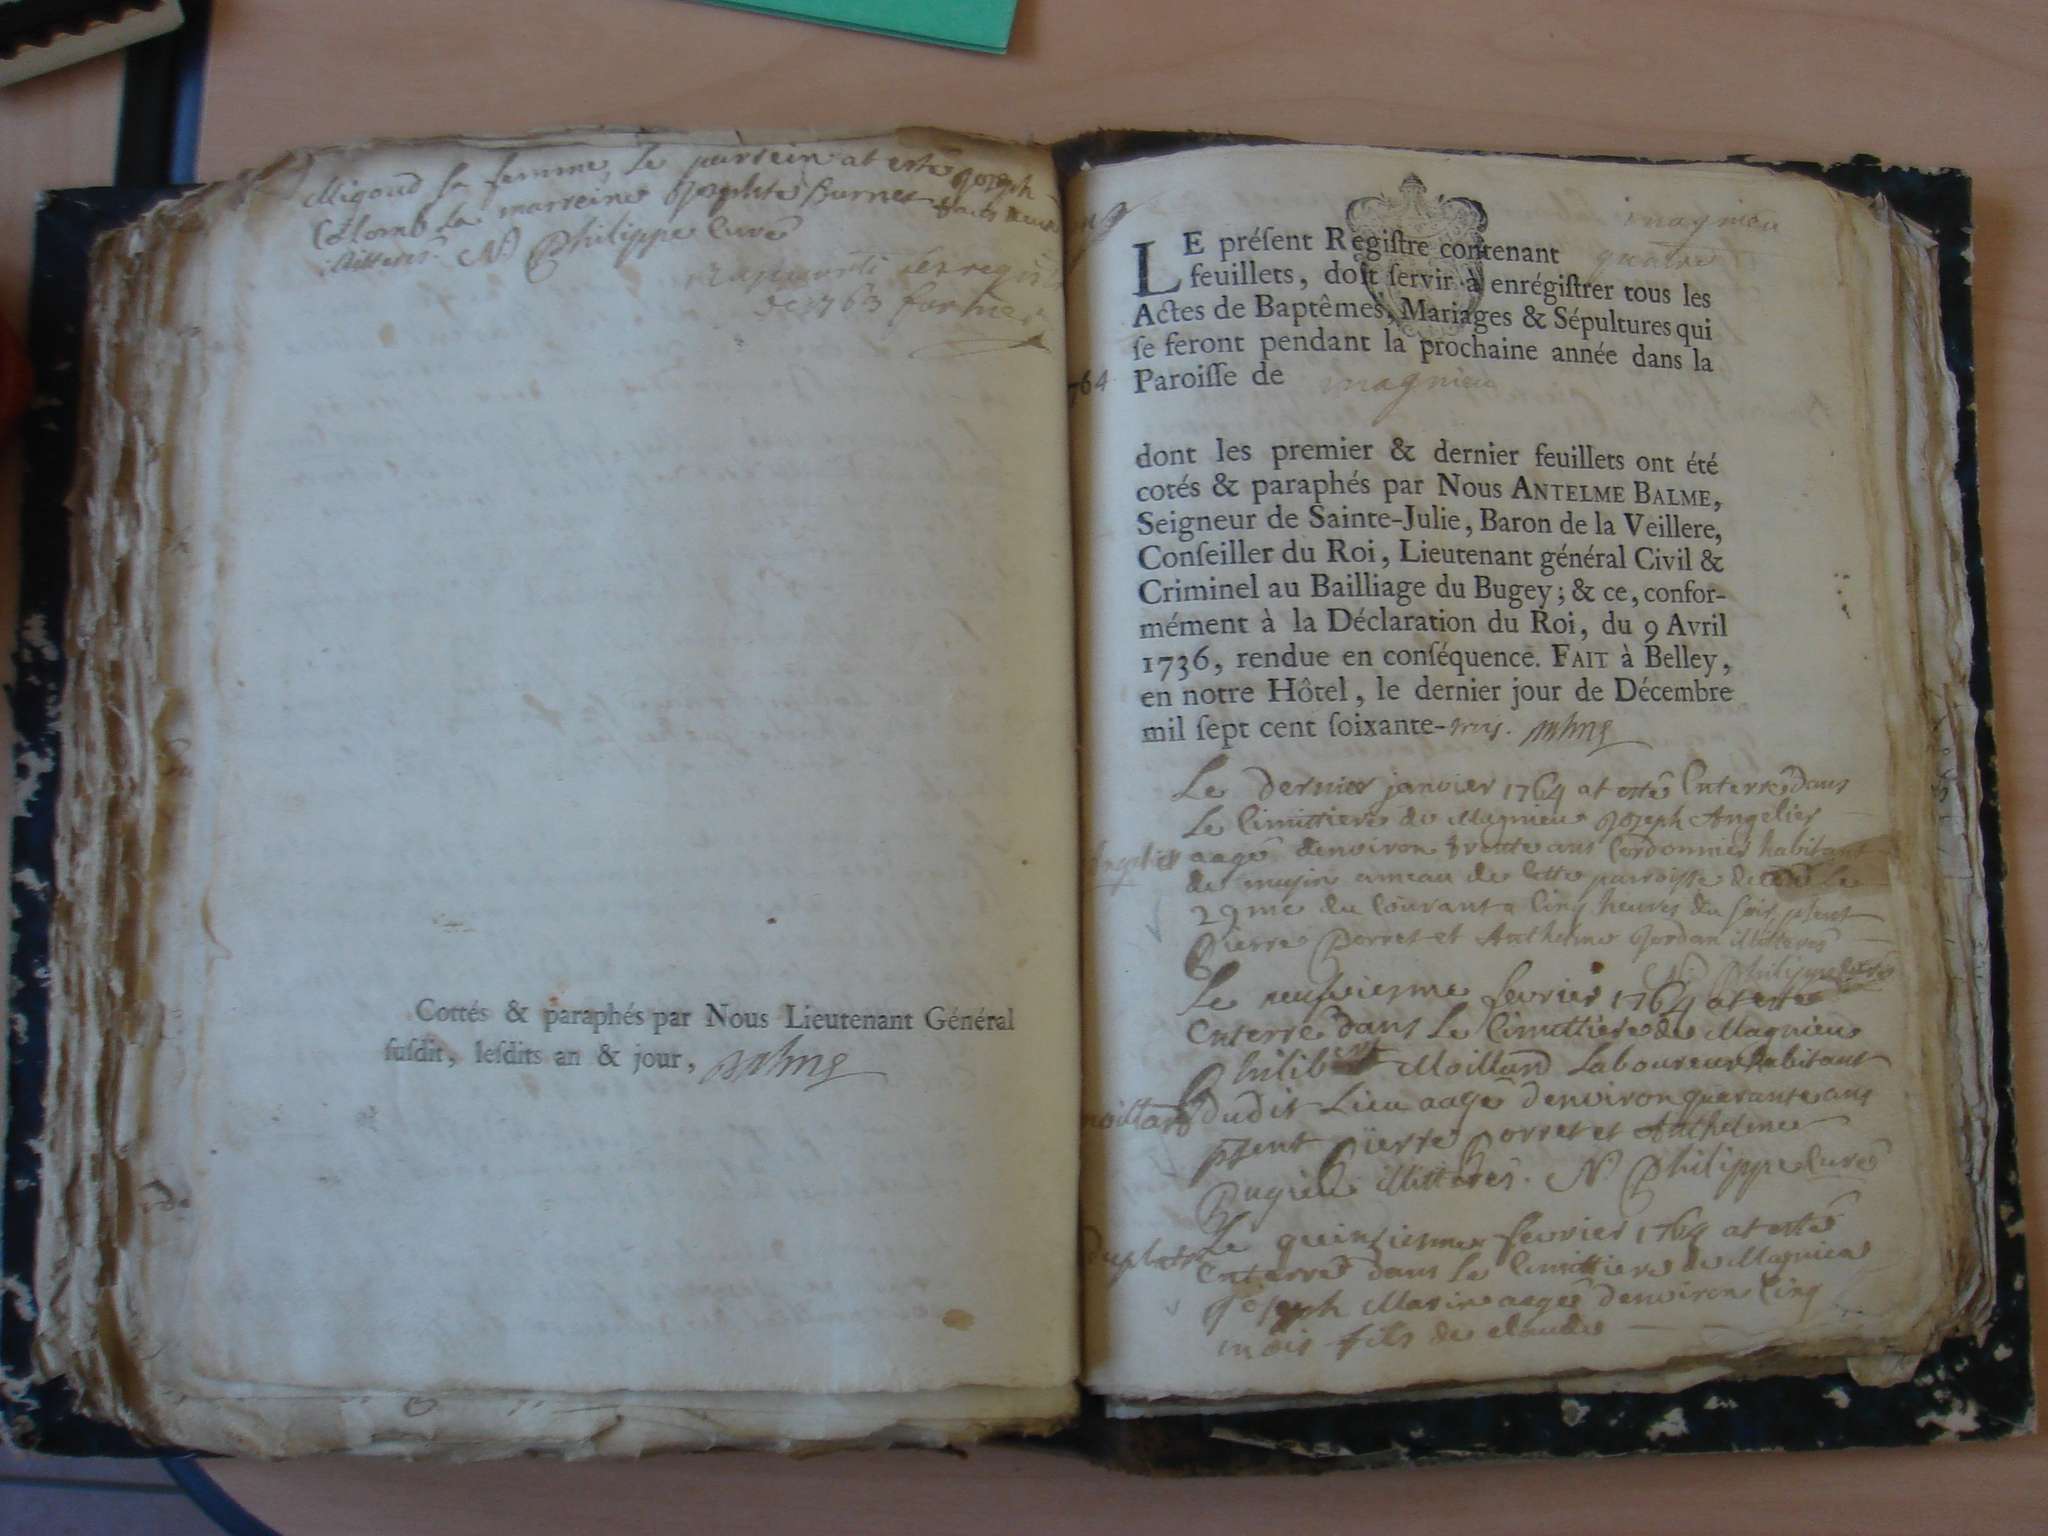 Migoud sa femme, le parrein at esté Joseph
Colomb la marreine Josephte Burnet
illitterés. N Philippe Curé
de 1763
Cottés & paraphés par Nous Lieutenant Général
susdit, lesdits an & jour,
magnieu
LE préſent Regiſtre contenant quatre
feuillets, doit ſervir à enrégiſtrer tous les
Actes de Baptêmes, Mariages & Sépultures qui
ſe feront pendant la prochaine année dans la
Paroiſſe de magnieu
dont les premier & dernier feuillets ont été
cotés & paraphés par Nous ANTELME BALME,
Seigneur de Sainte-Julie, Baron de la Veillere,
Conſeiller du Roi, Lieutenant général Civil &
Criminel au Bailliage du Bugey ; & ce, confor-
mément à la Déclaration du Roi, du 9 Avril
1736, rendue en conſéquence. FAIT à Belley,
en notre Hôtel, le dernier jour de Décembre
mil ſept cent ſoixante-trois.
Le dernier janvier 1764 at esté Enterré dans
Le Cimittiere de Magnieu Joseph Angelier
Angelier
aagé denviron trente ans Cordonnier habitant
de musin ameau de cette parroisse decedé le
29me du Courant a Cinq heures du soir, psent
Pierre Porret et Anthelme Jordan illitterés
N. Philippe Curé
Le neufviesme fevrier 1764 at esté
Enterré dans Le Cimittiere de Magnieu
Philibert Moillard Laboureur habitant
moillard
dudit Lieu aagé denviron quarante ans
psent Pierre Porret et Anthelme
Pugieu illitterés. N. Philippe Curé
Le quinsiesme fevrier 1764 at esté
Enterré dans Le Cimittiere de Magnieu
Joseph Marin aagé denviron Cinq
mois fils de claude